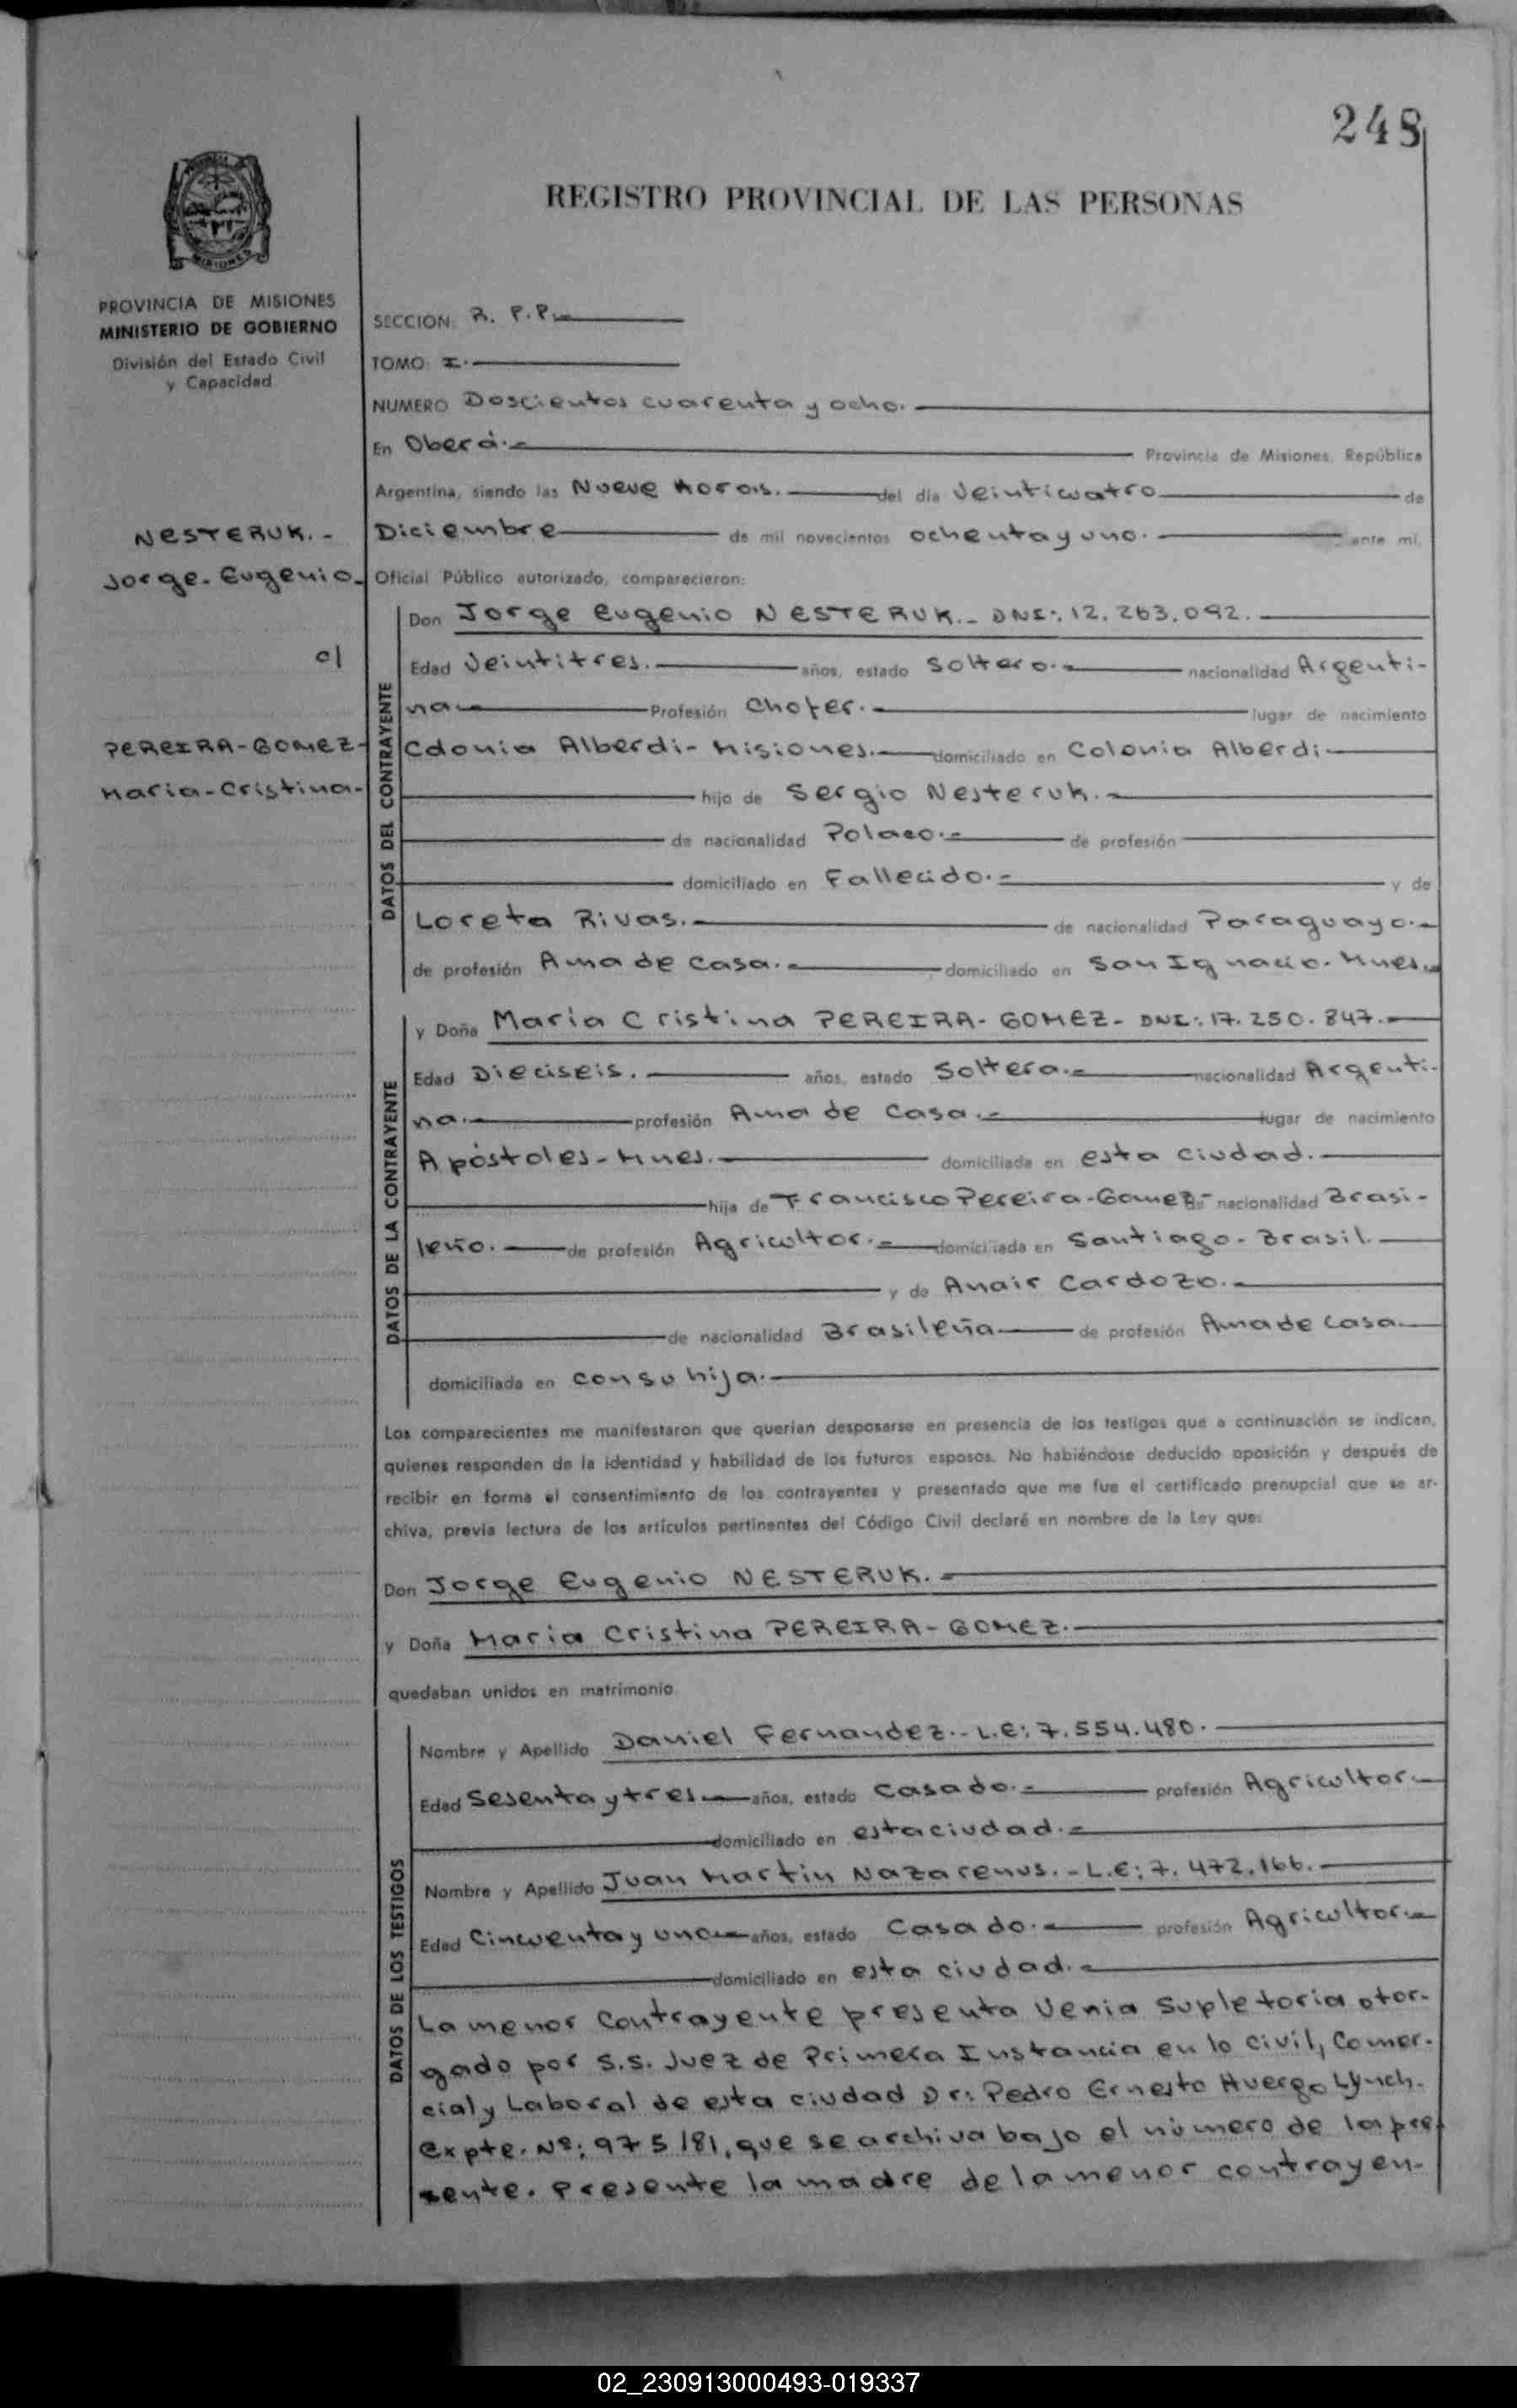 248
REGISTRO PROVINCIAL DE LAS PERSONAS
MISIONES
PROVINCIA DE MISIONES
MINISTERIO DE GOBIERNO
División del Estado Civil
y Capacidad
NESTERUK.-
Jorge-Eugenio.
c/
PEREIRA-GOMEZ-
Maria-Cristina-
SECCION: R. P. P.
TOMO: I.
NUMERO Doscientos cuarenta y ocho.
En Oberá.- Provincia de Misiones, República
Argentina, siendo las Nueve horas. del día Veinticuatro de
Diciembre de mil novecientos ochenta y uno. ante mí,
Oficial Público autorizado, comparecieron:
DATOS DEL CONTRAYENTE
Don Jorge Eugenio NESTERUK.- DNI:.12.263.092.
Edad Veintitres. años, estado Soltero.- nacionalidad Argenti-
na Profesión Chofer.- lugar de nacimiento
Colonia Alberdi-Misiones. domiciliado en Colonia Alberdi
hijo de Sergio Nesteruk.-
de nacionalidad Polaco.- de profesión
domiciliado en Fallecido.- y de
Loreta Rivas. de nacionalidad Paraguaya.-
de profesión Ama de casa.- domiciliado en San Ignacio-Mnes.
DATOS DE LA CONTRAYENTE
y Doña María Cristina PEREIRA-GOMEZ- DNI:.17.250.847.-
Edad Dieciseis. años, estado Soltera.- nacionalidad Argenti-
na. profesión Ama de Casa.- lugar de nacimiento
Apóstoles-Mnes. domiciliada en esta ciudad.
hija de Francisco Pereira-Gomez- de nacionalidad Brasi-
leño. de profesión Agricultor.- domiciliada en Santiago-Brasil.
y de Anair Cardozo.-
de nacionalidad Brasileña de profesión Ama de casa
domiciliada en con su hija.
Los comparecientes me manifestaron que querían desposarse en presencia de los testigos que a continuación se indican,
quienes responden de la identidad y habilidad de los futuros esposos. No habiéndose deducido oposición y después de
recibir en forma el consentimiento de los contrayentes y presentado que me fue el certificado prenupcial que se ar-
chiva, previa lectura de los artículos pertinentes del Código Civil declaré en nombre de la Ley que:
Don Jorge Eugenio NESTERUK.-
y Doña Maria Cristina PEREIRA-GOMEZ.
quedaban unidos en matrimonio
DATOS DE LOS TESTIGOS
Nombre y Apellido Daniel Fernandez.-L.E:7.554.480.
Edad Sesenta y tres años, estado Casado.- profesión Agricultor.
domiciliado en esta ciudad.-
Nombre y Apellido Juan Martin Nazarenus.-L.E:7.472.166.
Edad Cincuenta y uno años, estado Casado.- profesión Agricultor.-
domiciliado en esta ciudad.-
La menor Contrayente presenta Venia Supletoria otor-
gado por S.S. Juez de Primera Instancia en lo Civil, Comer-
cial y Laboral de esta ciudad Dr: Pedro Ernesto Huergo Lynch.
Expte. Nº: 975/81, que se archiva bajo el número de la pre-
sente. Presente la madre de la menor contrayen-
02_230913000493-019337